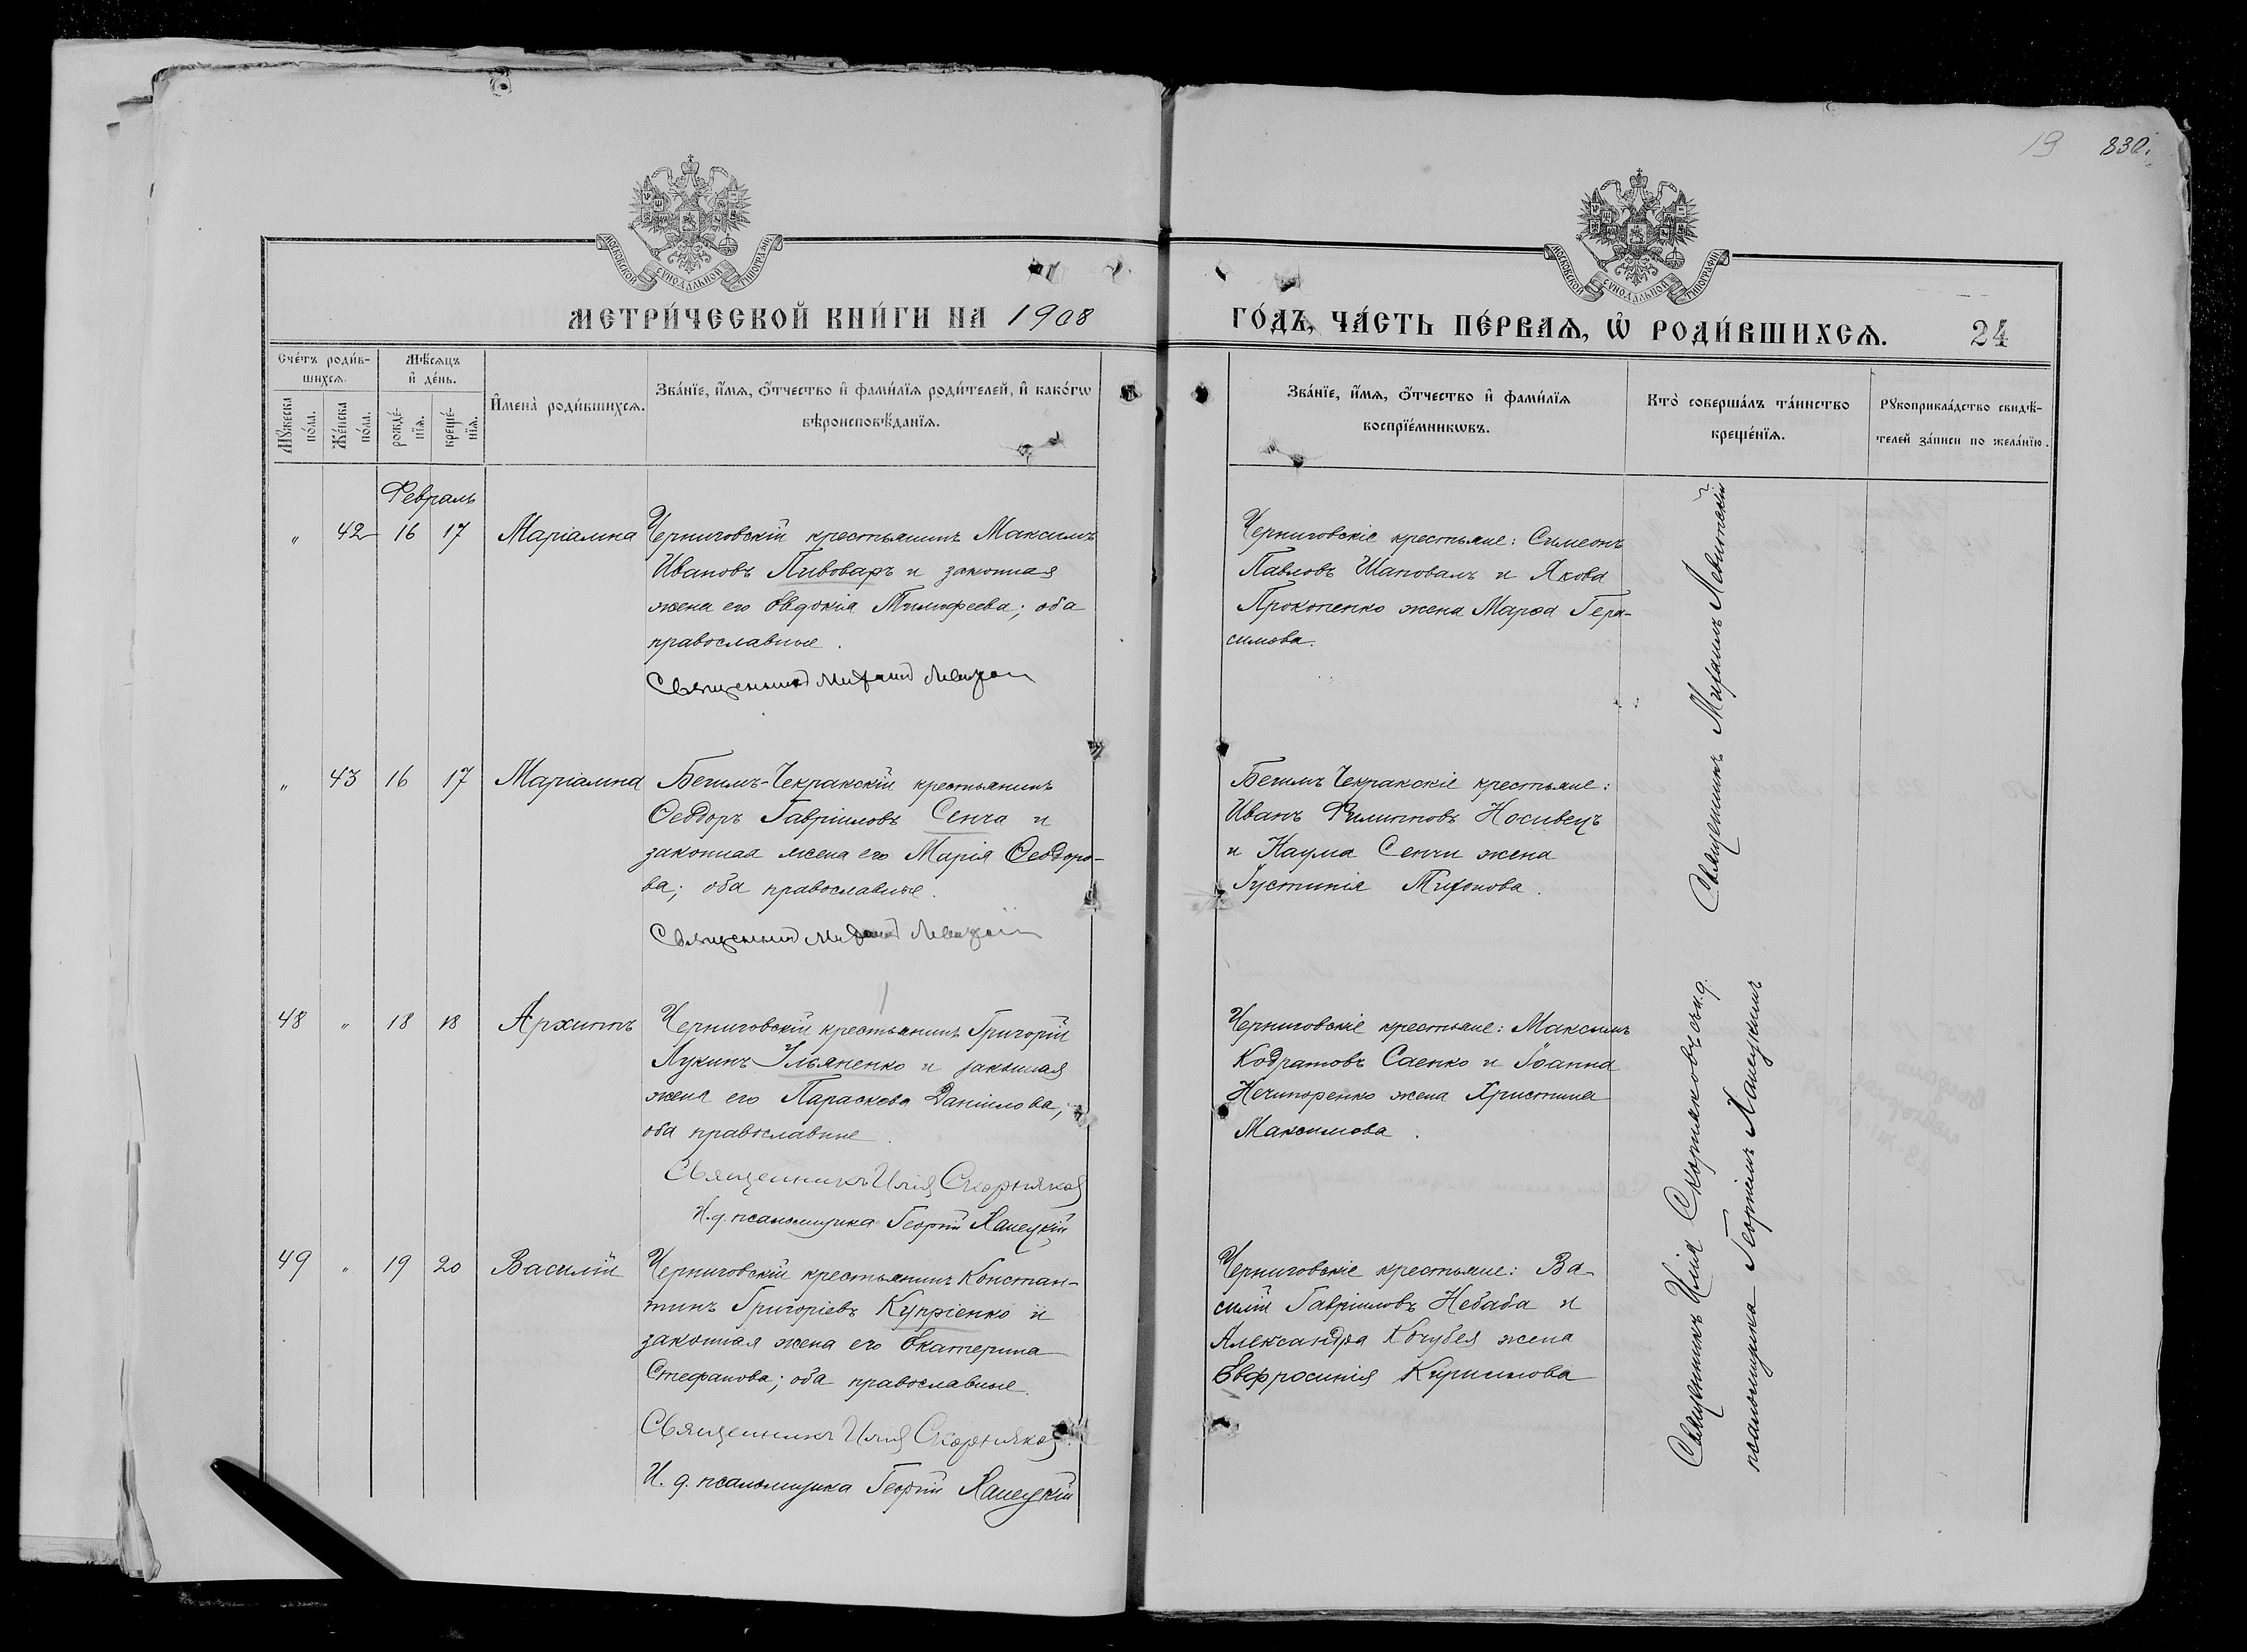 19 830.
МОСКОВСКОЙ СѴНОДАЛЬНОЙ ТИПОГРАФІИ
МОСКОВСКОЙ СѴНОДАЛЬНОЙ ТИПОГРАФІИ
МЕТРИ́ЧЕСКОЙ КНИ́ГИ НА 1908
ГО́ДЪ, ЧА́СТЬ ПЕ́РВАѦ, Ѽ РОДИ́ВШИХСѦ. 24
Сче́тъ роди́в-
шихсѧ.
Мꙋ́жеска по́ла.
Же́нска по́ла.
Мѣ́сѧцъ
и҆ де́нь.
рожде́-нїѧ.
креще́-нїѧ.
И҆мена̀ роди́вшихсѧ.
Зва́нїе, и҆́мѧ, ѻ҆́тчество и҆ фами́лїѧ роди́телей, и҆ како́гѡ
вѣроисповѣ́данїѧ.
Зва́нїе, и҆́мѧ, ѻ҆́тчество и҆ фами́лїѧ
воспрїе́мникѡвъ.
Кто̀ соверша́лъ та́инство
креще́нїѧ.
Рꙋкоприкла́дство свидѣ́-
телей за́писи по жела́нїю.
Февраль
" 42 16 17 Маріамна
Черниговскій крестьянинъ Максимъ
Ивановъ Пивоваръ и законная
жена его Евдокія Тимофеева; оба
православные.
Священникъ Михаилъ Левитскій
Черниговскіе крестьяне: Симеонъ
Павловъ Шаповалъ и Якова
Прокопенко жена Марѳа Гера-
симова.
Священникъ Михаилъ Левитскій
" 43 16 17 Маріамна
Бегимъ-Чекракскій крестьянинъ
Ѳеодоръ Гавріиловъ Сенча и
законная жена его Марія Ѳеодоро-
ва; оба православные.
Священникъ Михаилъ Левитскій
Бегимъ Чекракскіе крестьяне:
Иванъ Филипповъ Носивецъ
и Наума Сенчи жена
Іустинія Тихонова.
48 " 18 18 Архиппъ
Черниговскій крестьянинъ Григорій
Лукинъ Ульяненко и законная
жена его Параскева Даніилова;
оба православные.
Священникъ Илія Скорняковъ
И. д. псаломщика Георгій Ханецкій
Черниговскіе крестьяне: Максимъ
Кодратовъ Саенко и Іоанна
Нечипоренко жена Христина
Максимова.
Священникъ Илія Скорняковъ съ и. д.
псаломщика Георгіемъ Ханецкимъ
49 " 19 20 Василій
Черниговскій крестьянинъ Констан-
тинъ Григоріевъ Купріенко и
законная жена его Екатерина
Стефанова; оба православные.
Священникъ Илія Скорняковъ.
И. д. псаломщика Георгій Ханецкій
Черниговскіе крестьяне: Ва-
силій Гавріиловъ Небаба и
Александра Кочубея жена
Евфросинія Кириллова